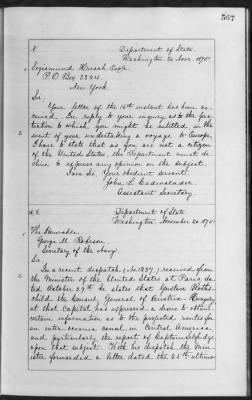 567
Department of State
Washington 20 Nov. 1875
Sigismund Hirsch, Esqr.
P.O. Box 2844
New York
Sir,
Your letter of the 16th instant has been re-
ceived. In reply to your inquiry as to the pro-
tection to which you might be entitled, in the
event of your undertaking a voyage to Europe,
I have to state that as you are not a citizen
of the United States, the Department must de-
cline to express any opinion on the subject.
I am Sir, Your obedient servant.
John L. Cadwalader
Assistant Secretary
Department of State
Washington November 20 1875
The Honorable
George M. Robeson
Secretary of the Navy.
Sir
In a recent despatch, (No. 1237) received from
the Minister of the United States at Paris da-
ted October 29th he states that Gustave Roths-
child the Consul General of Austria-Hungary
at that Capital, has expressed a desire to obtain
certain information as to the projected routes for
an inter-oceanic canal in Central America,
and particularly the report of Captain Selfridge
upon that subject. With his despatch the Min-
ister forwarded a letter dated the 25th ultimo